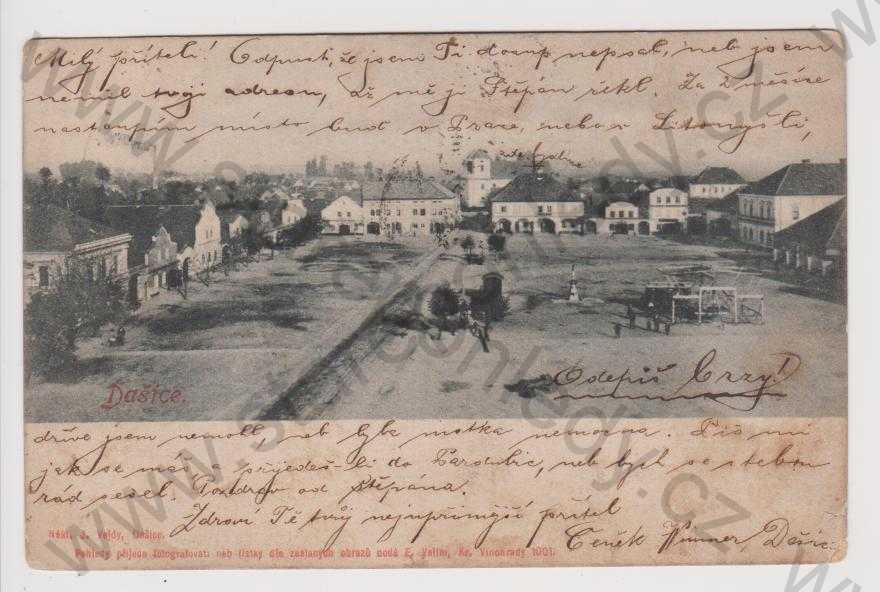 Milý příteli! Odpusť, že jsem Ti dosup nepsal, neb jsem
neměl tvoji adresu, až mě ji Štěpán řekl. Za 2 měsíce
nastoupím místo buď v Praze, nebo v Litomyšli,
Dašice.
Odepiš brzy!
dříve jsem nemohl, neb byla matka nemocna. Piš mi
jak se máš a přijedeš-li do Pardubic, neb bych se s tebou
rád sešel. Pozdrav od Štěpána.
Zdraví Tě tvůj nejupřímnější přítel
Čeněk Dašice
Nákl. J. Vejdy, Dašice.
Pohledy přijede fotografovati neb tisky dle zaslaných obrazů dodá E. Velím, Kr. Vinohrady 1001.
www.stare-pohledy.cz